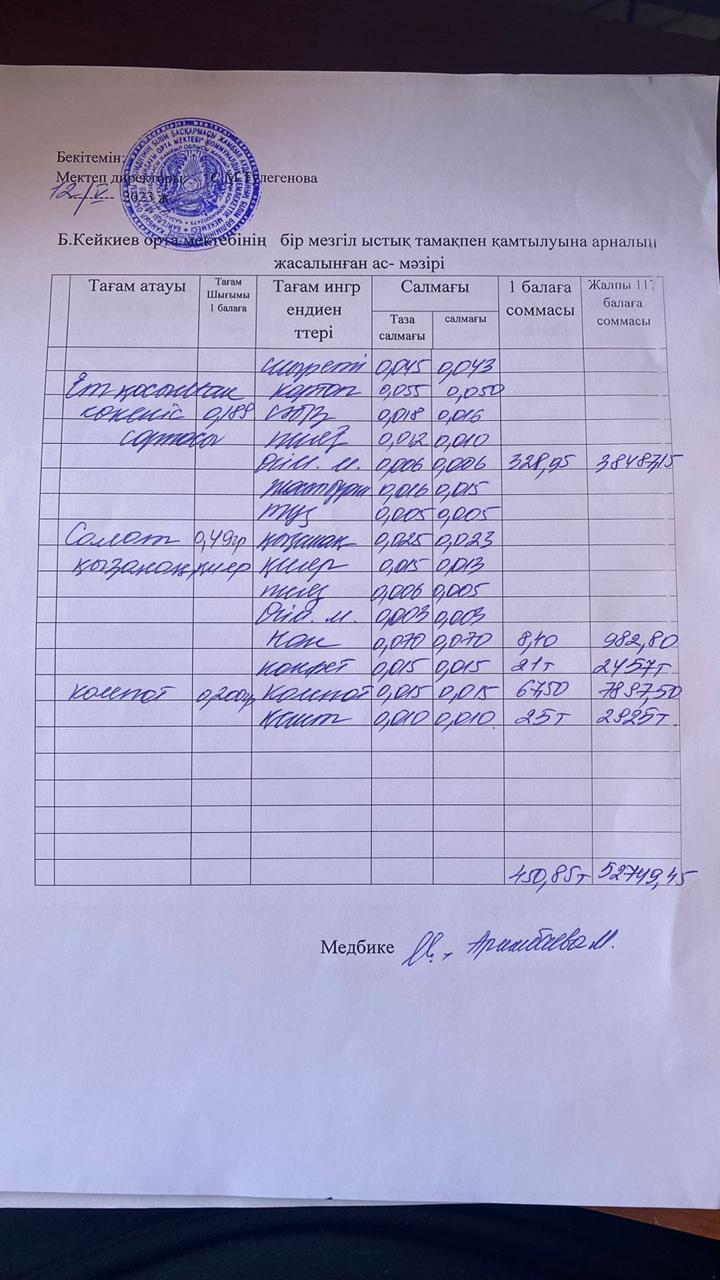 Бекітемін:
Мектеп директоры: С.М.Тулегенова
12/V 2023 ж
Б.Кейкиев орта мектебінің бір мезгіл ыстық тамақпен қамтылуына арналып
жасалынған ас- мәзірі
Тағам атауы Тағам Шығымы 1 балаға Тағам ингр ендиен ттері Салмағы 1 балаға соммасы Жалпы 117 балаға соммасы
Таза салмағы салмағы
0,045 0,043
Ет қосылған картоп 0,055 0,050
көкөніс 0,189 сәбіз 0,018 0,016
сорпасы пияз 0,012 0,010
Өсім. м. 0,006 0,006 328,95 38487,15
0,016 0,015
тұз 0,005 0,005
Салат 0,49гр қызанақ 0,025 0,023
қызанақ қияр қияр 0,015 0,013
пияз 0,006 0,005
Өсім. м. 0,003 0,003
Нан 0,070 0,070 8,40 982,80
конфет 0,015 0,015 21т 2457т
компот 0,200гр Компот 0,015 0,015 67,50 7897,50
Қант 0,010 0,010 25т 2925т.
450,85т 52749,45
Медбике